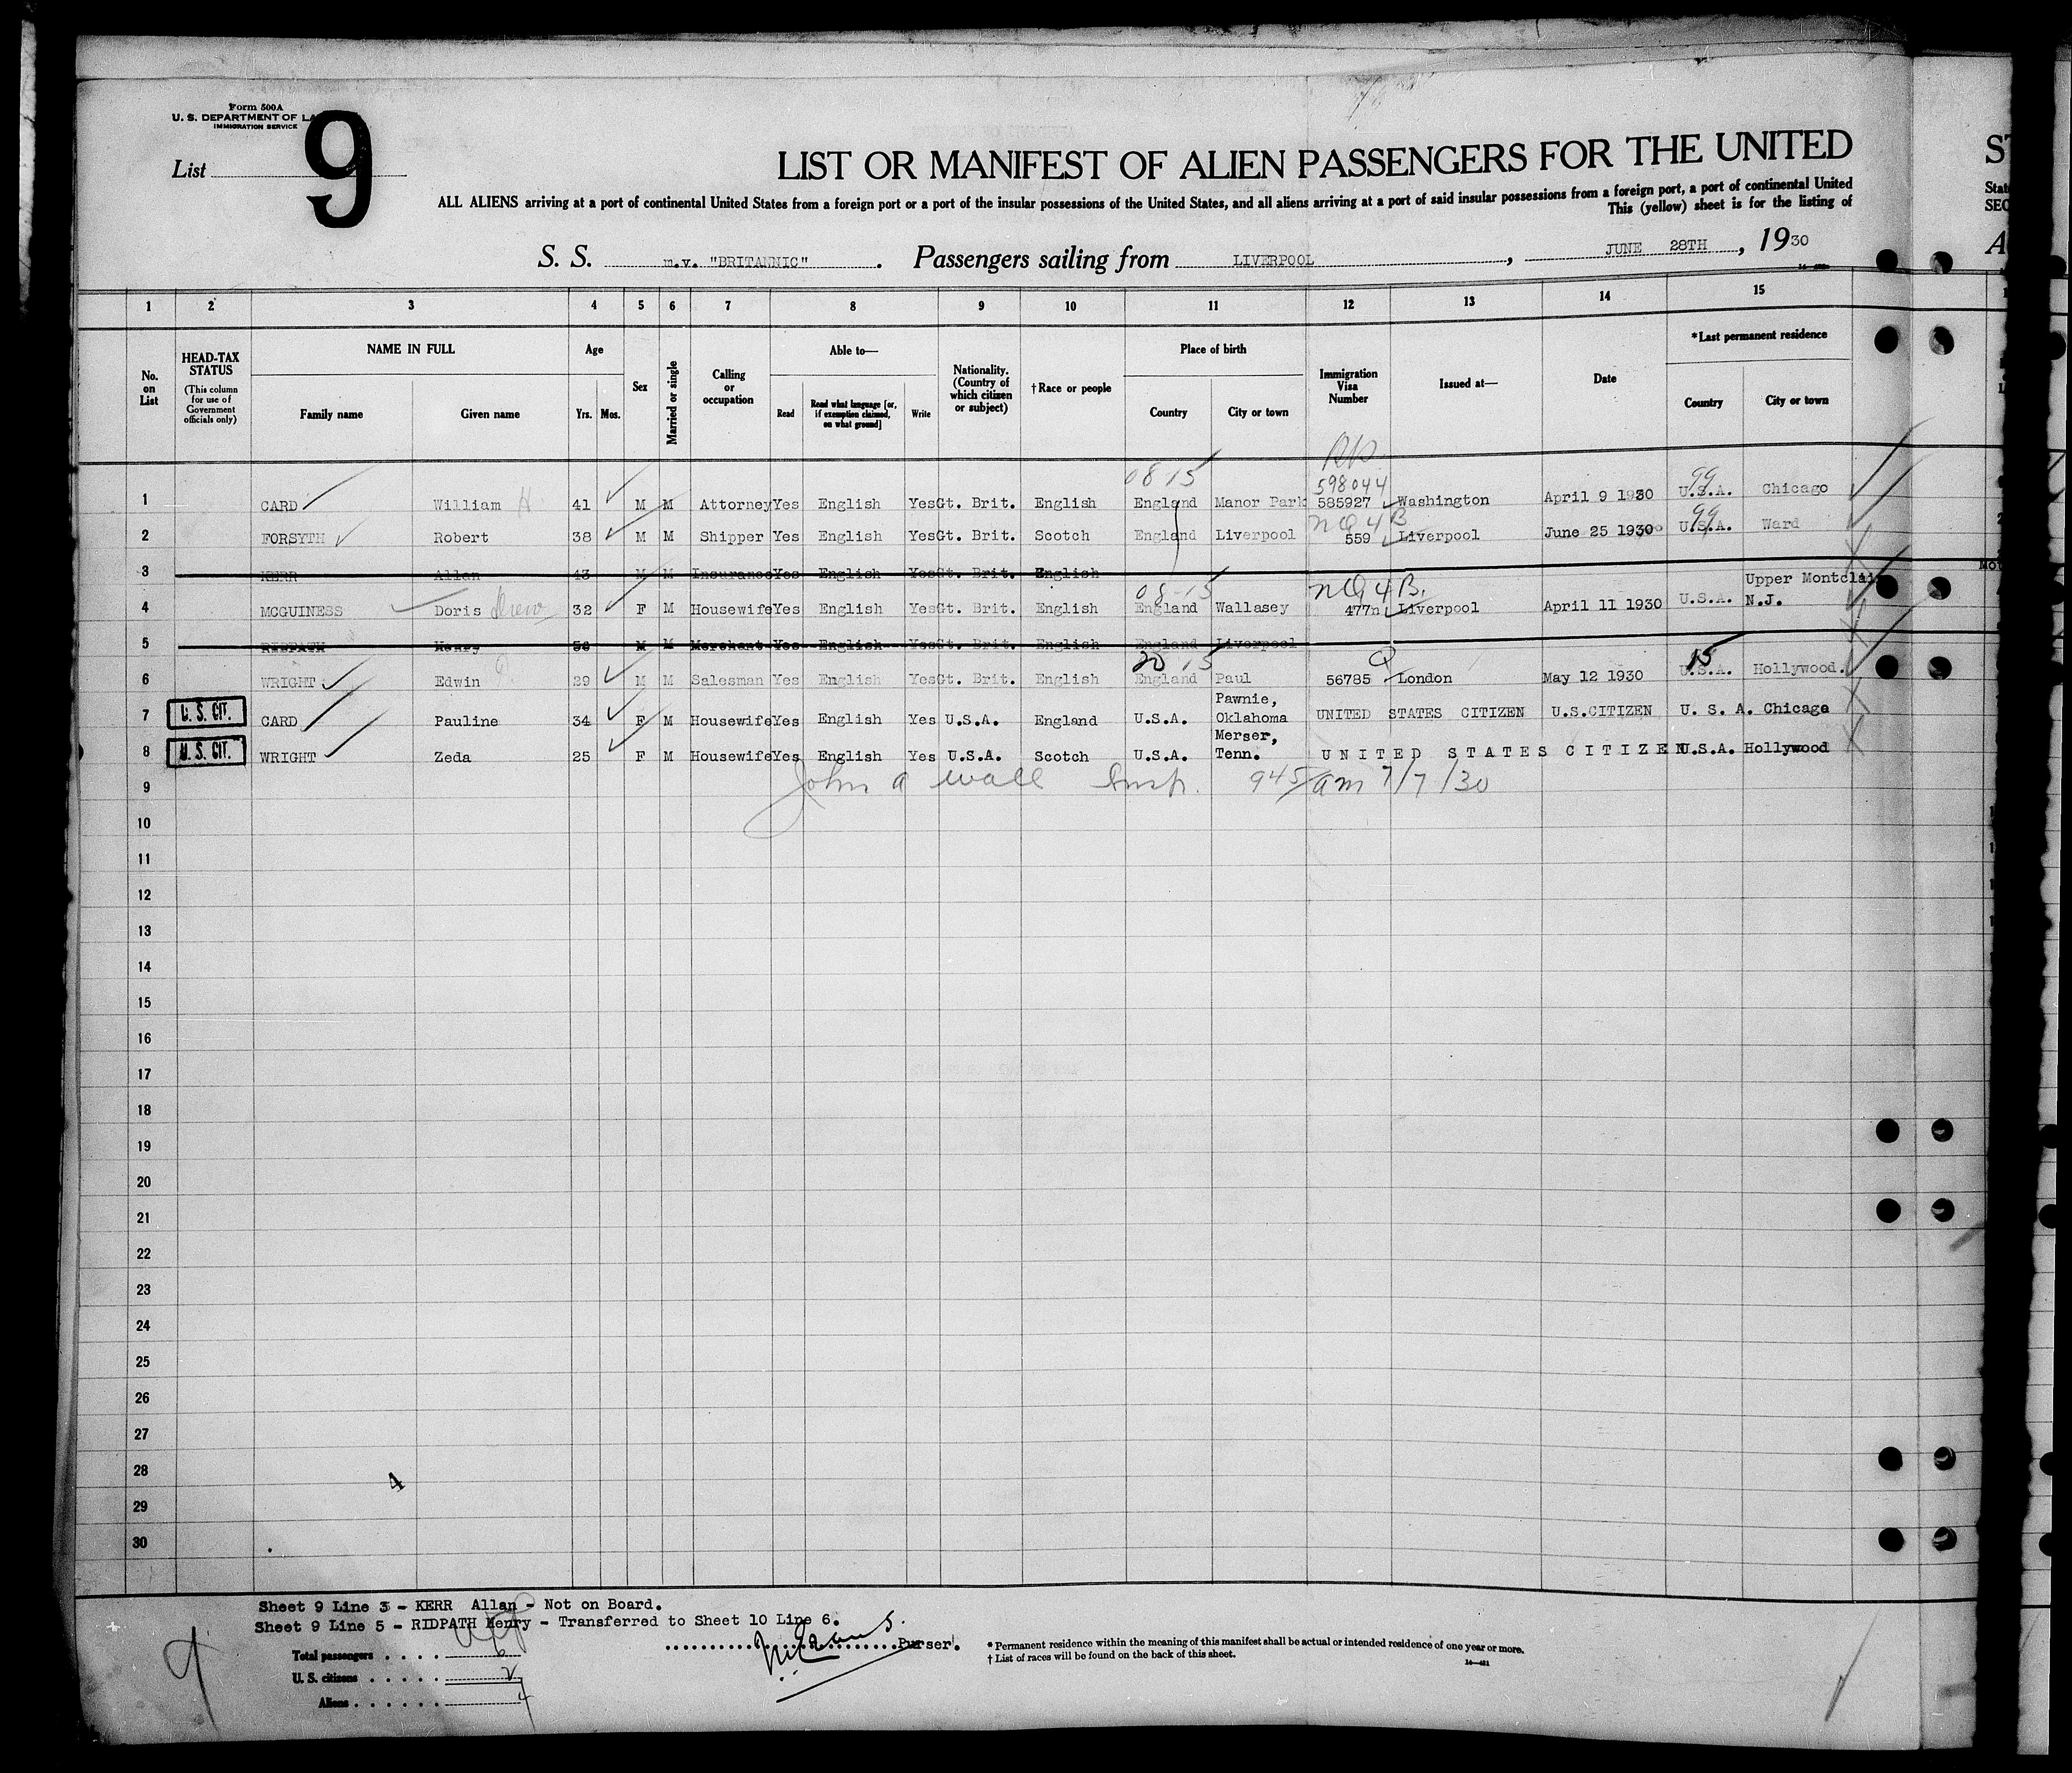 Form 500A
U. S. DEPARTMENT OF LA
IMMIGRATION SERVICE
List 9
LIST OR MANIFEST OF ALIEN PASSENGERS FOR THE UNITED
ALL ALIENS arriving at a port of continental United States from a foreign port or a port of the insular possessions of the United States, and all aliens arriving at a port of said insular possessions from a foreign port, a port of continental United
This (yellow) sheet is for the listing of
S. S. m.v. "BRITANNIC". Passengers sailing from LIVERPOOL, JUNE 28TH, 1930
1 2 3 4 5 6 7 8 9 10 11 12 13 14 15
No. on List
HEAD-TAX STATUS (This column for use of Government officials only)
NAME IN FULL Family name Given name
Age Yrs. Mos.
Sex
Married or single
Calling or occupation
Able to— Read Read what language [or, if exemption claimed, on what ground] Write
Nationality. (Country of which citizen or subject)
†Race or people
Place of birth Country City or town
Immigration Visa Number
Issued at—
Date
*Last permanent residence Country City or town
08 15 598044 99
1 CARD William H 41 M M Attorney Yes English Yes Gt. Brit. English England Manor Park 585927 Washington April 9 1930 U.S.A. Chicago
NQ 4 B 99
2 FORSYTH Robert 38 M M Shipper Yes English Yes Gt. Brit. Scotch England Liverpool 559 Liverpool June 25 1930 U.S.A. Ward
3 KERR Allan 43 M M Insurance Yes English Yes Gt. Brit. English
08-15 NQ 4 B.
4 MCGUINESS Doris Drew 32 F M Housewife Yes English Yes Gt. Brit. English England Wallasey 477n Liverpool April 11 1930 U.S.A. Upper Montclair N.J.
5 RIDPATH Henry 56 M M Merchant Yes English Yes Gt. Brit. English England Liverpool
20 15 Q 15
6 WRIGHT Edwin 29 M M Salesman Yes English Yes Gt. Brit. English England Paul 56785 London May 12 1930 U.S.A. Hollywood.
U. S. CIT.
7 CARD Pauline 34 F M Housewife Yes English Yes U.S.A. England U.S.A. Pawnie, Oklahoma UNITED STATES CITIZEN U.S.CITIZEN U. S. A. Chicago
U. S. CIT.
8 WRIGHT Zeda 25 F M Housewife Yes English Yes U.S.A. Scotch U.S.A. Merser, Tenn. UNITED STATES CITIZEN U.S.A. Hollywood
9 John A Wall Insp. 945 am 7/7/30
10
11
12
13
14
15
16
17
18
19
20
21
22
23
24
25
26
27
28
4
29
30
Sheet 9 Line 3 - KERR Allan - Not on Board.
Sheet 9 Line 5 - RIDPATH Henry - Transferred to Sheet 10 Line 6.
Purser.
Total passengers 6
U. S. citizens 2
Aliens 4
* Permanent residence within the meaning of this manifest shall be actual or intended residence of one year or more.
† List of races will be found on the back of this sheet.